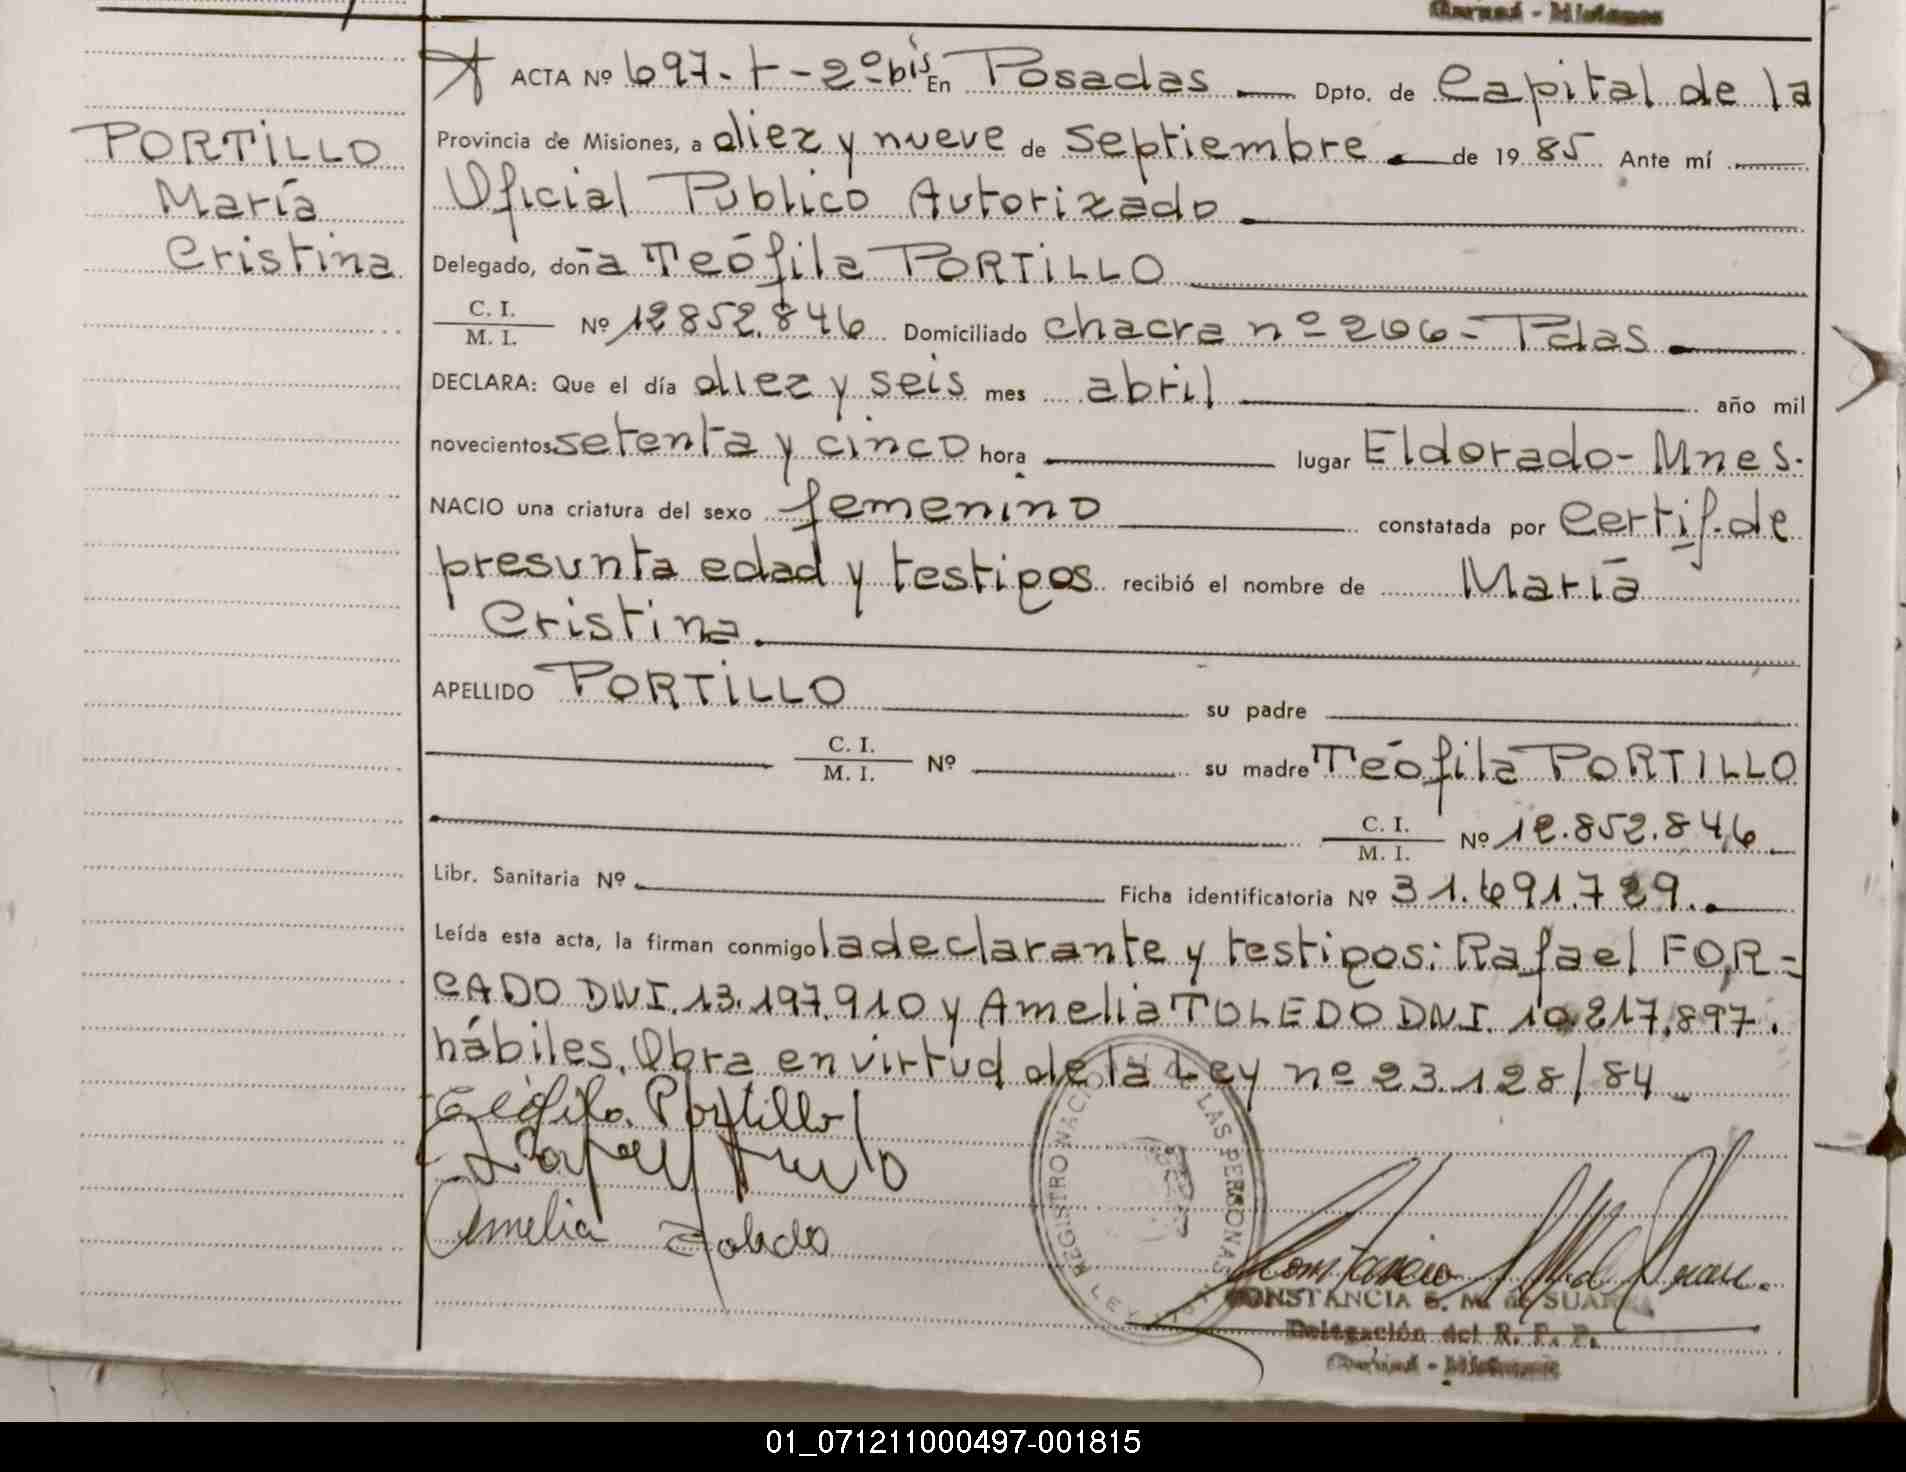 Garupá - Misiones
ACTA Nº 697-t-2º bis En Posadas Dpto. de Capital de la
PORTILLO
María
Cristina
Provincia de Misiones, a diez y nueve de septiembre de 1985 Ante mí
Oficial Público Autorizado
Delegado, doña Teófila PORTILLO
C. I.
M. I.
Nº 12852.846 Domiciliado chacra nº 206 - Pdas
DECLARA: Que el día diez y seis mes abril año mil
novecientos setenta y cinco hora lugar Eldorado-Mnes.
NACIO una criatura del sexo femenino constatada por Certif. de
presunta edad y testigos recibió el nombre de María
Cristina
APELLIDO PORTILLO su padre
C. I.
M. I.
Nº su madre Teófila PORTILLO
C. I.
M. I.
Nº 12.852.846
Libr. Sanitaria Nº Ficha identificatoria Nº 31.691.729.
Leída esta acta, la firman conmigo la declarante y testigos: Rafael FOR=
CADO DNI. 13.197.910 y Amelia TOLEDO DNI. 10.217.897.
hábiles. Obra en virtud de la Ley nº 23.128/84
Teófila Portillo
Amelia Toledo
REGISTRO NAC LAS PERSONAS
LEY
CONSTANCIA S. M. de SUAREZ
Delegación del R. P. P.
Garupá - Misiones
01_071211000497-001815